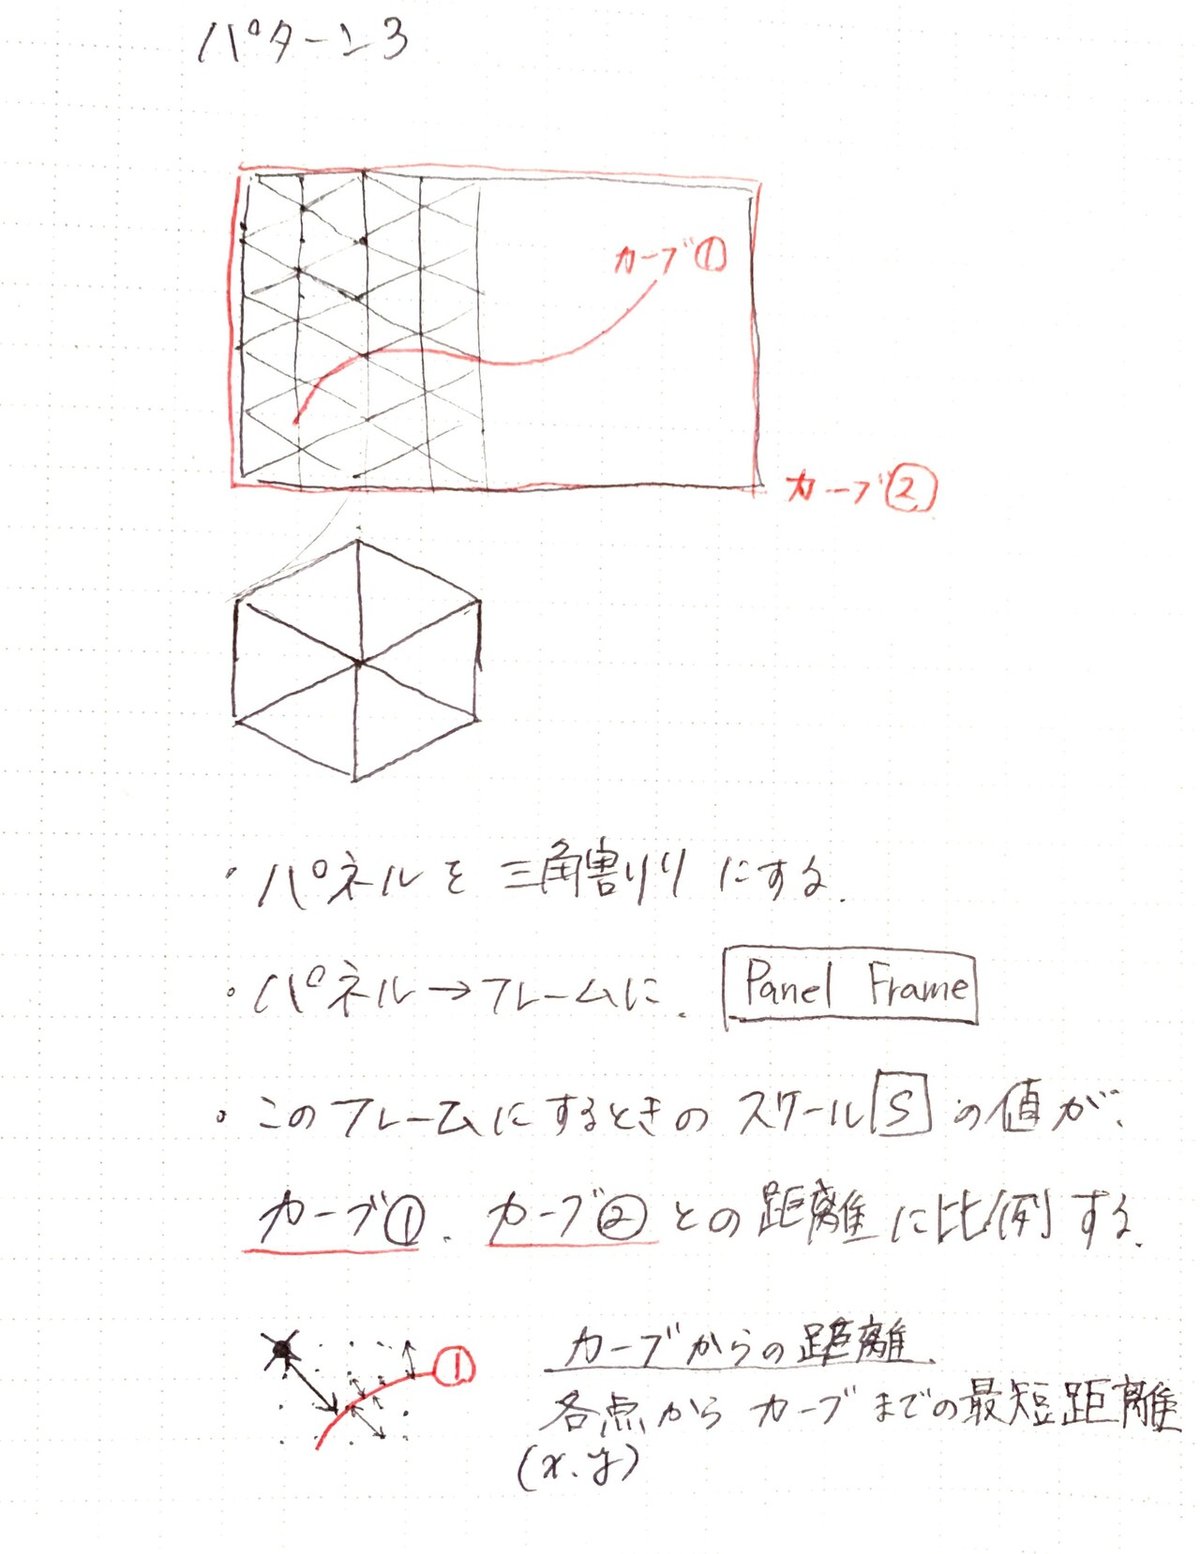 パターン3
カーブ①
カーブ②
・パネルを三角割りにする.
・パネル→フレームに. Panel Frame
・このフレームにするときのスケール S の値が、
カーブ①、カーブ②との距離に比例する.
①
カーブからの距離.
各点からカーブまでの最短距離
(x.y)